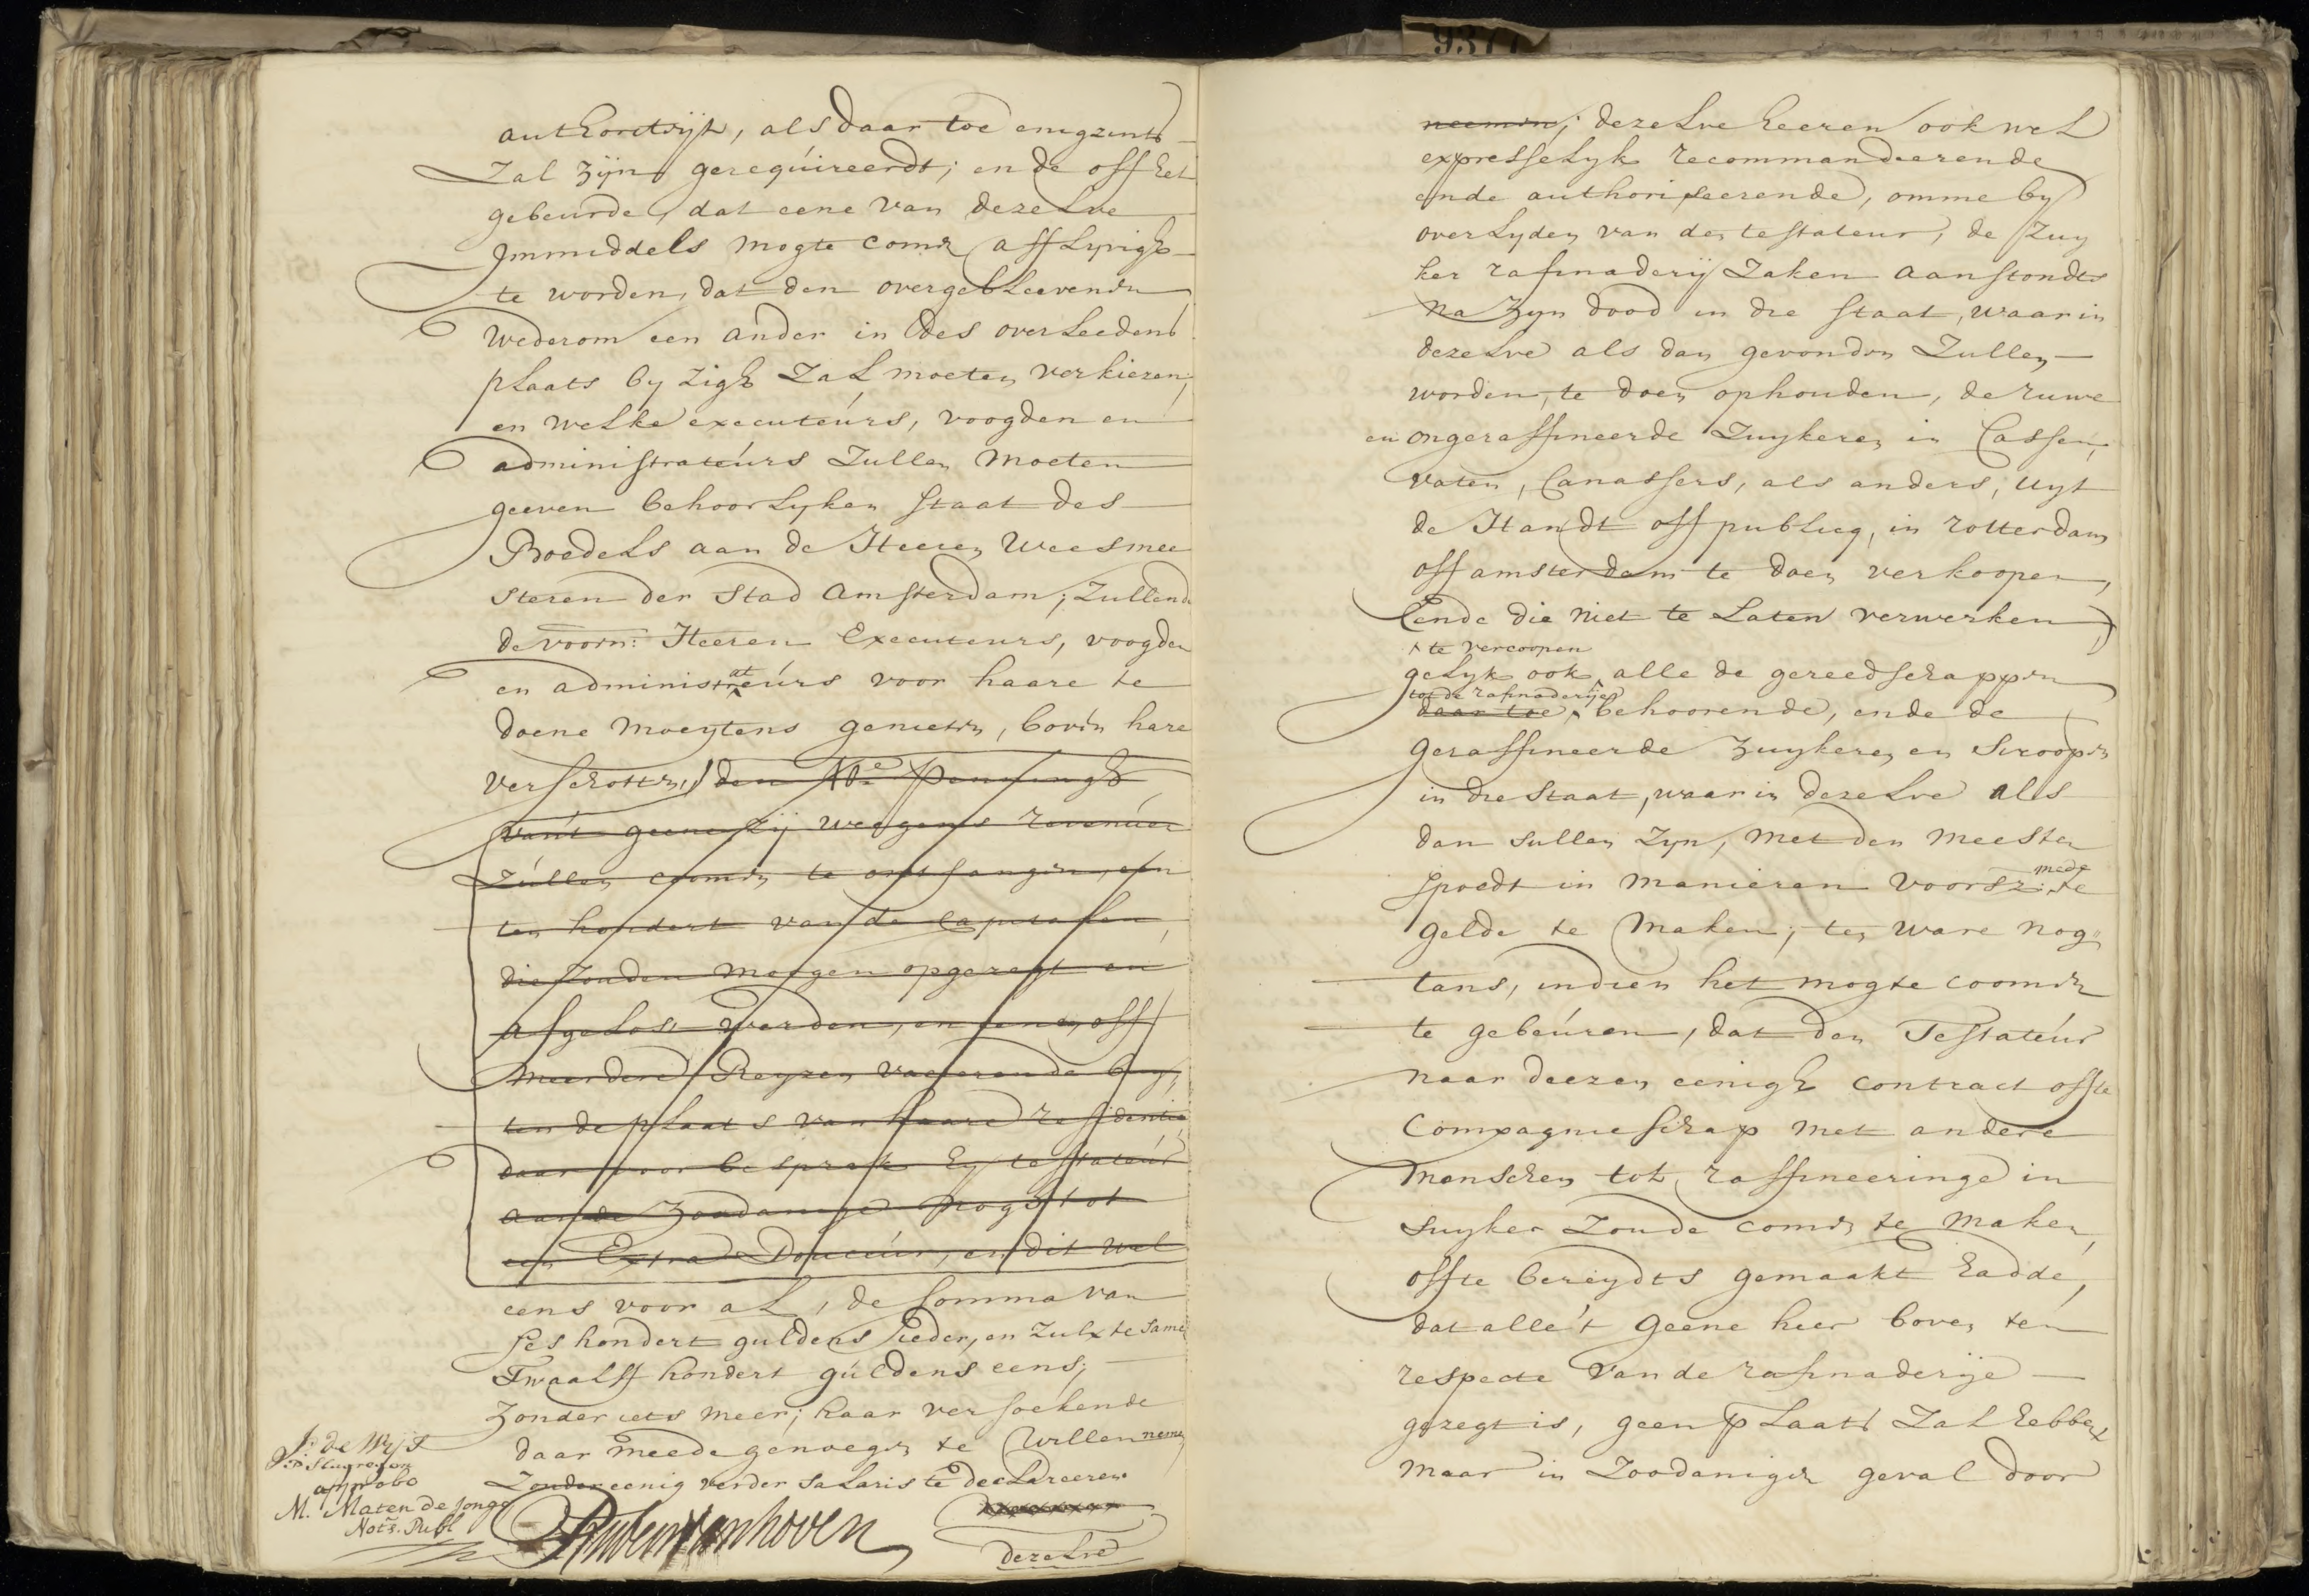 9377
authoretsijt, als daar toe enigzints
Zal Zijn gerequireerdt; ende off het
gebeurde, dat eene van dezelve
Immiddels mogte comen afflyvigh
te worden, dat den overgebleevenen
Wederom een ander in des overleedens
plaats by zigh Zal moeten verkiezen;
en welke executeurs, voogden en
administrateurs Zullen moeten
geeven behoorlyken staat des
Boedels aan de Heeren Weesmee
steren der Stad Amsterdam; Zullende
de voorn: Heeren Executeurs, voogden
en administrateurs voor haare te
doene moeytens genieten, boven hare
verschotten, den 10e Penningh
van't geene zij weegens revenuen
Zullen coomen te ontfangen, een
ten hondert van de Capitalen,
die zouden mogen opgezegt en
afgelost werden, en eene off
meerdere Reyzen vaceerende buy,
ten de plaats van haare residentie
daar voor besprak hy testateur
aan de Zoodanige nogh tot
een Extra Douceur, en dit wel
eens voor al, de somma van
ses hondert guldens ieder, en Zulx te samen
Twaalff hondert guldens eens;
Zonder iets meer; haar versoekende
daar meede genoegen te Willen nemen
Zonder eenig verder salaris te declareeren
J: de Wijs
approbo
M. Maten de Jonge
Nots. Publ
dezelve
neemen; dezelve heeren ook wel
expresselyk recommandeerende
ende authoriseerende, omme by
overlyden van den testateur, de Zuy
ker rafinaderij Zaken aanstondts
na Zyn dood in die staat, waar in
dezelve als dan gevonden Zullen
worden, te doen ophouden, de ruwe
en ongeraffineerde Zuykeren in Cassen,
vaten, Canassers, als anders, uyt
de Handt off publicq, in rotterdam
off amsterdam te doen verkoopen,
Ende die niet te Laten verwerken
te vercoopen
gelyk ook alle de gereedschappen
tot de rafinaderije
daar toe behoorende, ende de
geraffineerde Zuykeren en Siroopen
in die staat, waar in dezelve als
dan sullen Zyn, met den meesten
spoedt in manieren voorsz: mede te
gelde te maken; ten ware nog"
tans, indien het mogte coomen
te gebeuren, dat den Testateur
naar deezen eenigh contract offte
Compagnieschap met andere
menschen tot raffineeringe in
suyker Zoude comen te maken,
offte bereydts gemaakt hadde,
dat alle 't geene hier boven ten
respecte van de rafinaderije
gezegt is, geen plaats Zal hebben,
maar in Zoodanigen geval door